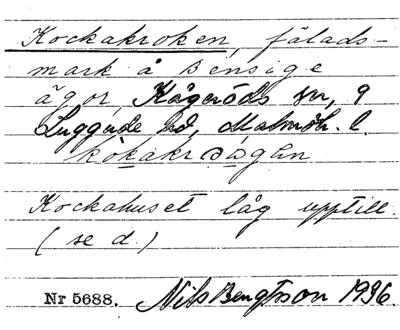 Kockakroken, fälads-
mark å Bensige
ägor, Kågeröds sn, 9
Luggude hd, Malmöh. l.
Kockahuset låg upptill.
(se d.)
Nr 5688. Nils Bengtsson 1936.